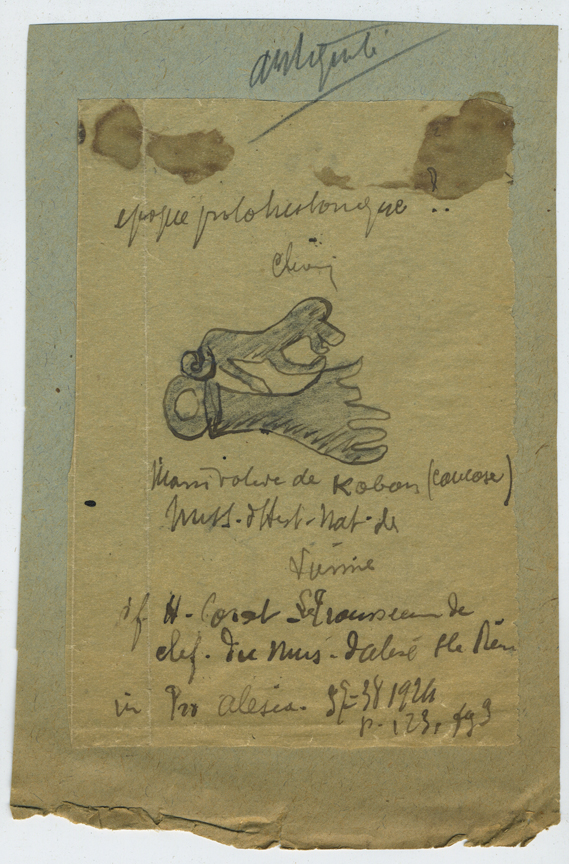 antiquité
epoque protohistorique ..
Main votive de Koban (Caucase)
Muss. d'Hist. Nat. de
Vienne
cf. H. Corot Le Trousseau de
clef. du Mus. d'alise Ste Rein
in Pro alésia. 37-38 1924
p. 123, fig 9